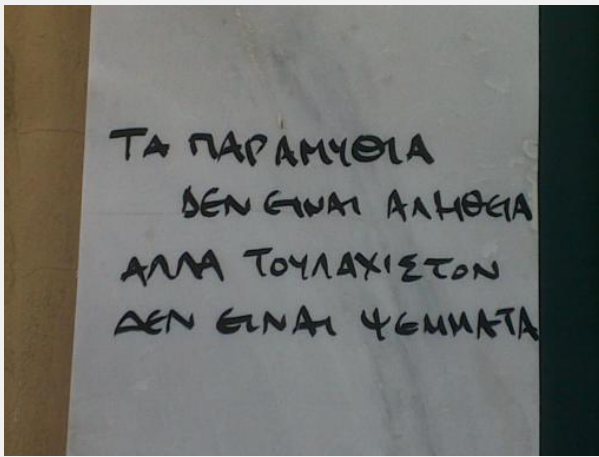 ΤΑ ΠΑΡΑΜΥΘΙΑ
ΔΕΝ ΕΙΝΑΙ ΑΛΗΘΕΙΑ
ΑΛΛΑ ΤΟΥΛΑΧΙΣΤΟΝ
ΔΕΝ ΕΙΝΑΙ ΨΕΜΜΑΤΑ